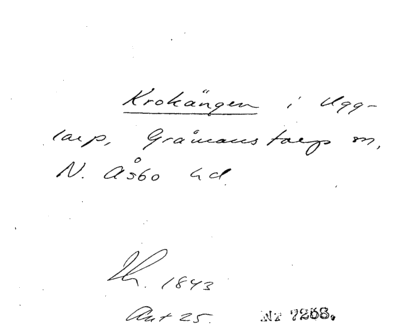 Krokängen i Ugg-
larp, Gråmanstorp sn,
N. Åsbo hd.
Th. 1843
Ant 25. Nr 7268.